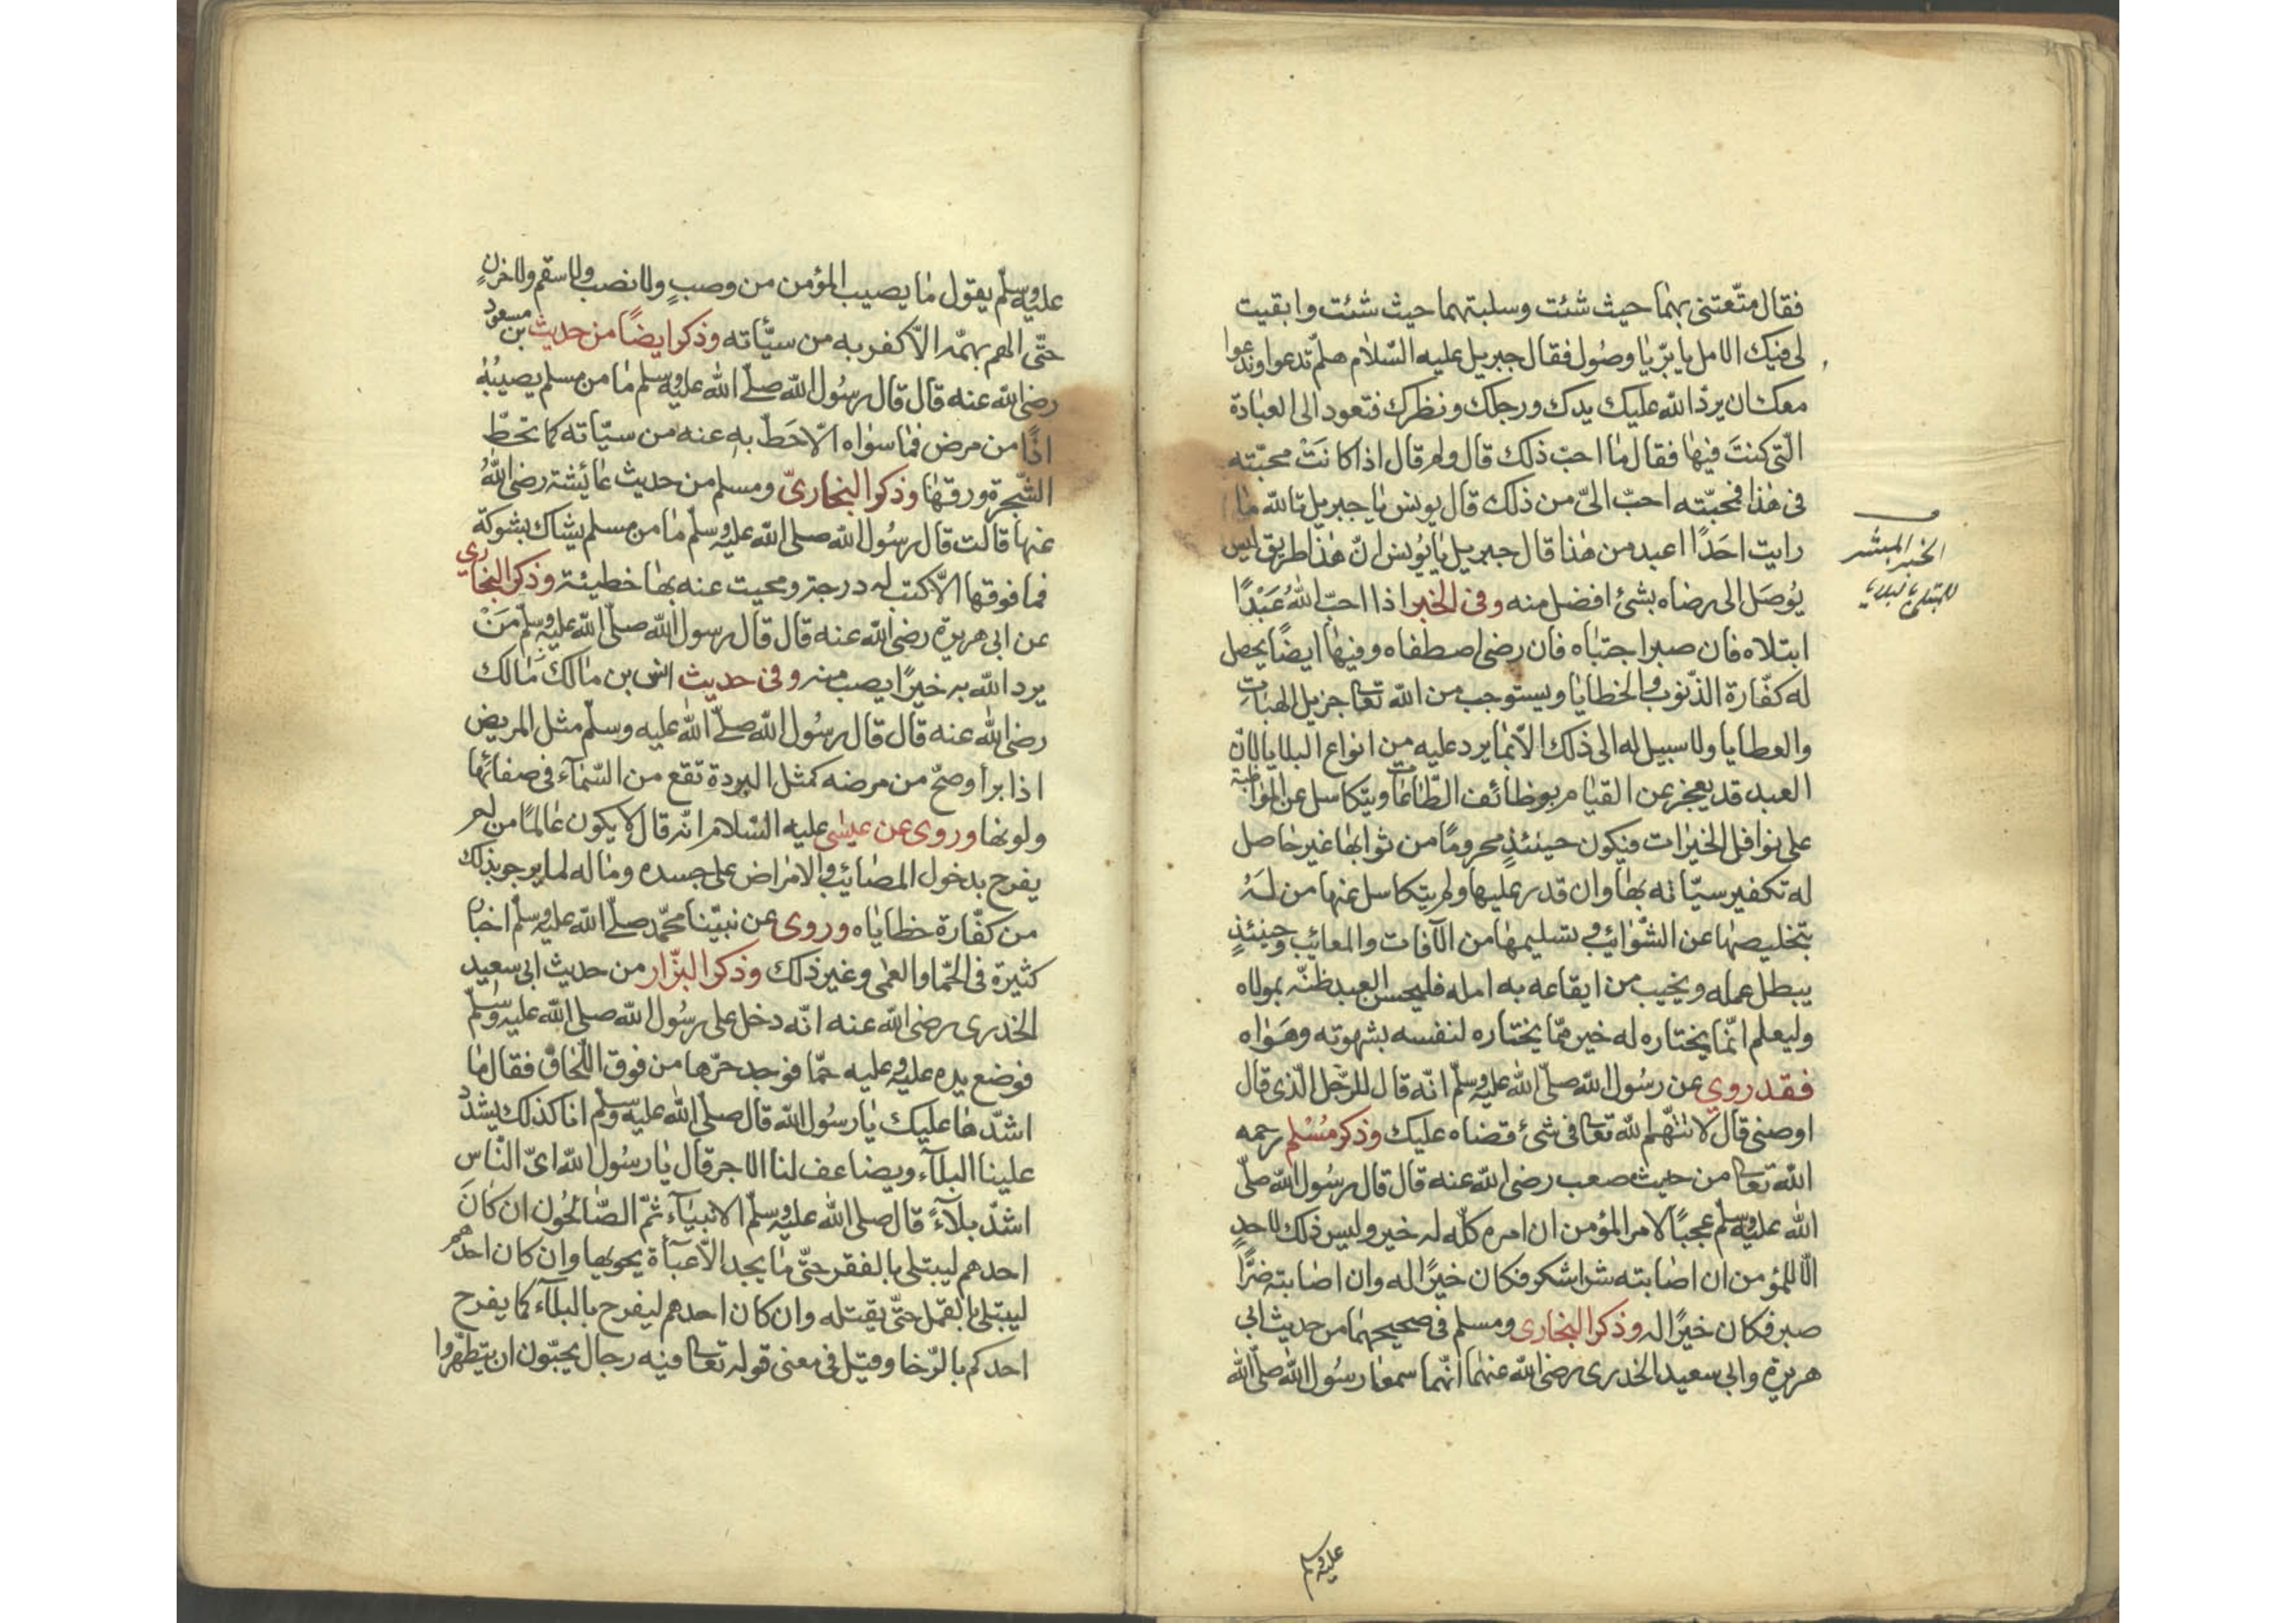 فقال متّعتنى بهما حيث شئت وسلبتهما حيث شئت وابقيت
لى فيك الامل يا برّ يا وصُول فقال جبريل عليه السّلام هلمّ تدعوا وندعوا
معك ان يردّ الله عليك يدك ورجلك ونظرك فتعود الى العبادة
الّتى كنتَ فيها فقال ما احبّ ذلك قال ولم قال اذا كانَتْ محبّته
فى هٰذا فمحبّته احبّ الىّ من ذلك قال يونس يا جبريل تالله ما
رايت احَدًا اعبد من هٰذا قال جبريل يا يُونس انّ هٰذا طريق ليس
يُوصَل الى رضاه بشئ افضل منه وفى الخبر اذا احبّ اللهُ عَبْدًا
ابتلاه فان صبر اجتباه فان رضى اصطفاه وفيها ايضًا يحصل
له كفّارة الذّنوب والخطايا ويستوجب من الله تعا جزيل الهبات
والعطايا ولا سبيل له الى ذلك الّا بما يرد عليه من انواع البلايا لانّ
العبد قد يعجز عن القيام بوظائف الطّاعات ويتكاسل عن المواظبة
على نوافل الخيرات فيكون حينئذٍ محرومًا من ثوابها غير حاصل
له تكفير سيّاته بها وان قدر عليها ولم يتكاسل عنها من لَهُ
بتخليصها عن الشّوائب و تسليمها من الآفات والمعائب وحينئذٍ
يبطل عمله ويخيب من ايقاعه به امله فليحسن العبد ظنّه بمولاه
وليعلم انّما يختاره له خير ممّا يختاره لنفسه بشهوته وهَوٰاه
فقد روى عن رسُول الله صلّى الله عليه وسلّم انّه قال للرّجل الّذى قال
اوصنى قال لا تتّهم لله تعا فى شئ قضاه عليك وذكر مُسْلم رحمه
الله تعا من حيث صعب رضى الله عنه قال قال رسُول الله صلّى
الله عليه وسلّم عجبًا لامر المؤمن ان امره كلّه له خير وليس ذلك لاحدٍ
الّا للمؤمن ان اصابته شرا شكر فكان خيرًا له وان اصابته ضرًّا
صبر فكان خيرًا له وذكر البخارى ومسلم فى صحيحهما من حديث ابى
هريرة وابى سعيد الخدرى رضى الله عنهما انّهما سمعا رسُول الله صلّى الله
الخبر المبشر
للمبتلى بالبلايا
عليه وسلم
عليه وسلّم يقول ما يصيب المؤمن من وصبٍ ولا نصب ولا سقم ولا حزنٍ
حتّى الهم يهمّه الّا كفر به من سيّأته وذكر ايضًا من حديث بن مسعود
رضى الله عنه قال قال رسُول الله صلّى الله عليه وسلم ما من مسلم يصيبُهُ
اذًا من مرض فما سواه الّا حَطّ به عنه من سيّاته كما تحطّ
الشّجرة ورقها وذكر البخارىّ ومسلم من حديث عائشة رضى اللهُ
عنها قالت قال رسُول الله صلى الله عليه وسلّم ما من مسلم يشاك بشوكة
فما فوقها الّا كتب له درجة ومحيت عنه بها خطيئة وذكر البخارى
عن ابى هريرة رضى الله عنه قال قال رسول الله صلّى الله عليه وسلّم مَنْ
يرد الله به خيرًا يصب منه وفى حديث انس بن مالك مالك
رضى الله عنه قال قال رسُول الله صلّى الله عليه وسلّم مثل المريض
اذا برأ وصحّ من مرضه كمثل البردة تقع من السّماء فى صفائها
ولونها وروى عن عيسٰى عليه السّلام انّه قال لا يكون عالمًا من لم
يفرح بدخول المصائب والامراض على جسده وماله لما يرجو بذلك
من كفّارة خطاياه وروى عن نبيّنا محمّد صلّى الله عليه وسلّم اخبار
كثيرة فى الحمّا والعمى وغير ذلك وذكر البزّار من حديث ابى سعيد
الخدرى رضى الله عنه انّه دخل على رسُول الله صلى الله عليه وسلّم
فوضع يده عليه وعليه حمّا فوجد حرّها من فوق اللّحاق فقال ما
اشدّها عليك يا رسُول الله قال صلّى الله عليه وسلّم انا كذلك يشدّد
علينا البلاء ويضاعف لنا الاجر قال يا رسُول الله اىّ النّاس
اشدّ بلآءً قال صلى الله عليه وسلّم الانبيآء ثمّ الصّالحُون ان كانَ
احدهم ليبتلى بالفقر حتّى ما يجد الّا عبآة يحويها وان كان احدهم
ليبتلى بالقمل حتّى يقتله وان كان احدهم ليفرح بالبلآء كما يفرح
احدكم بالرّخا وقيل فى معنى قوله تعا فيه رجال يحبّون ان يتطهّروا